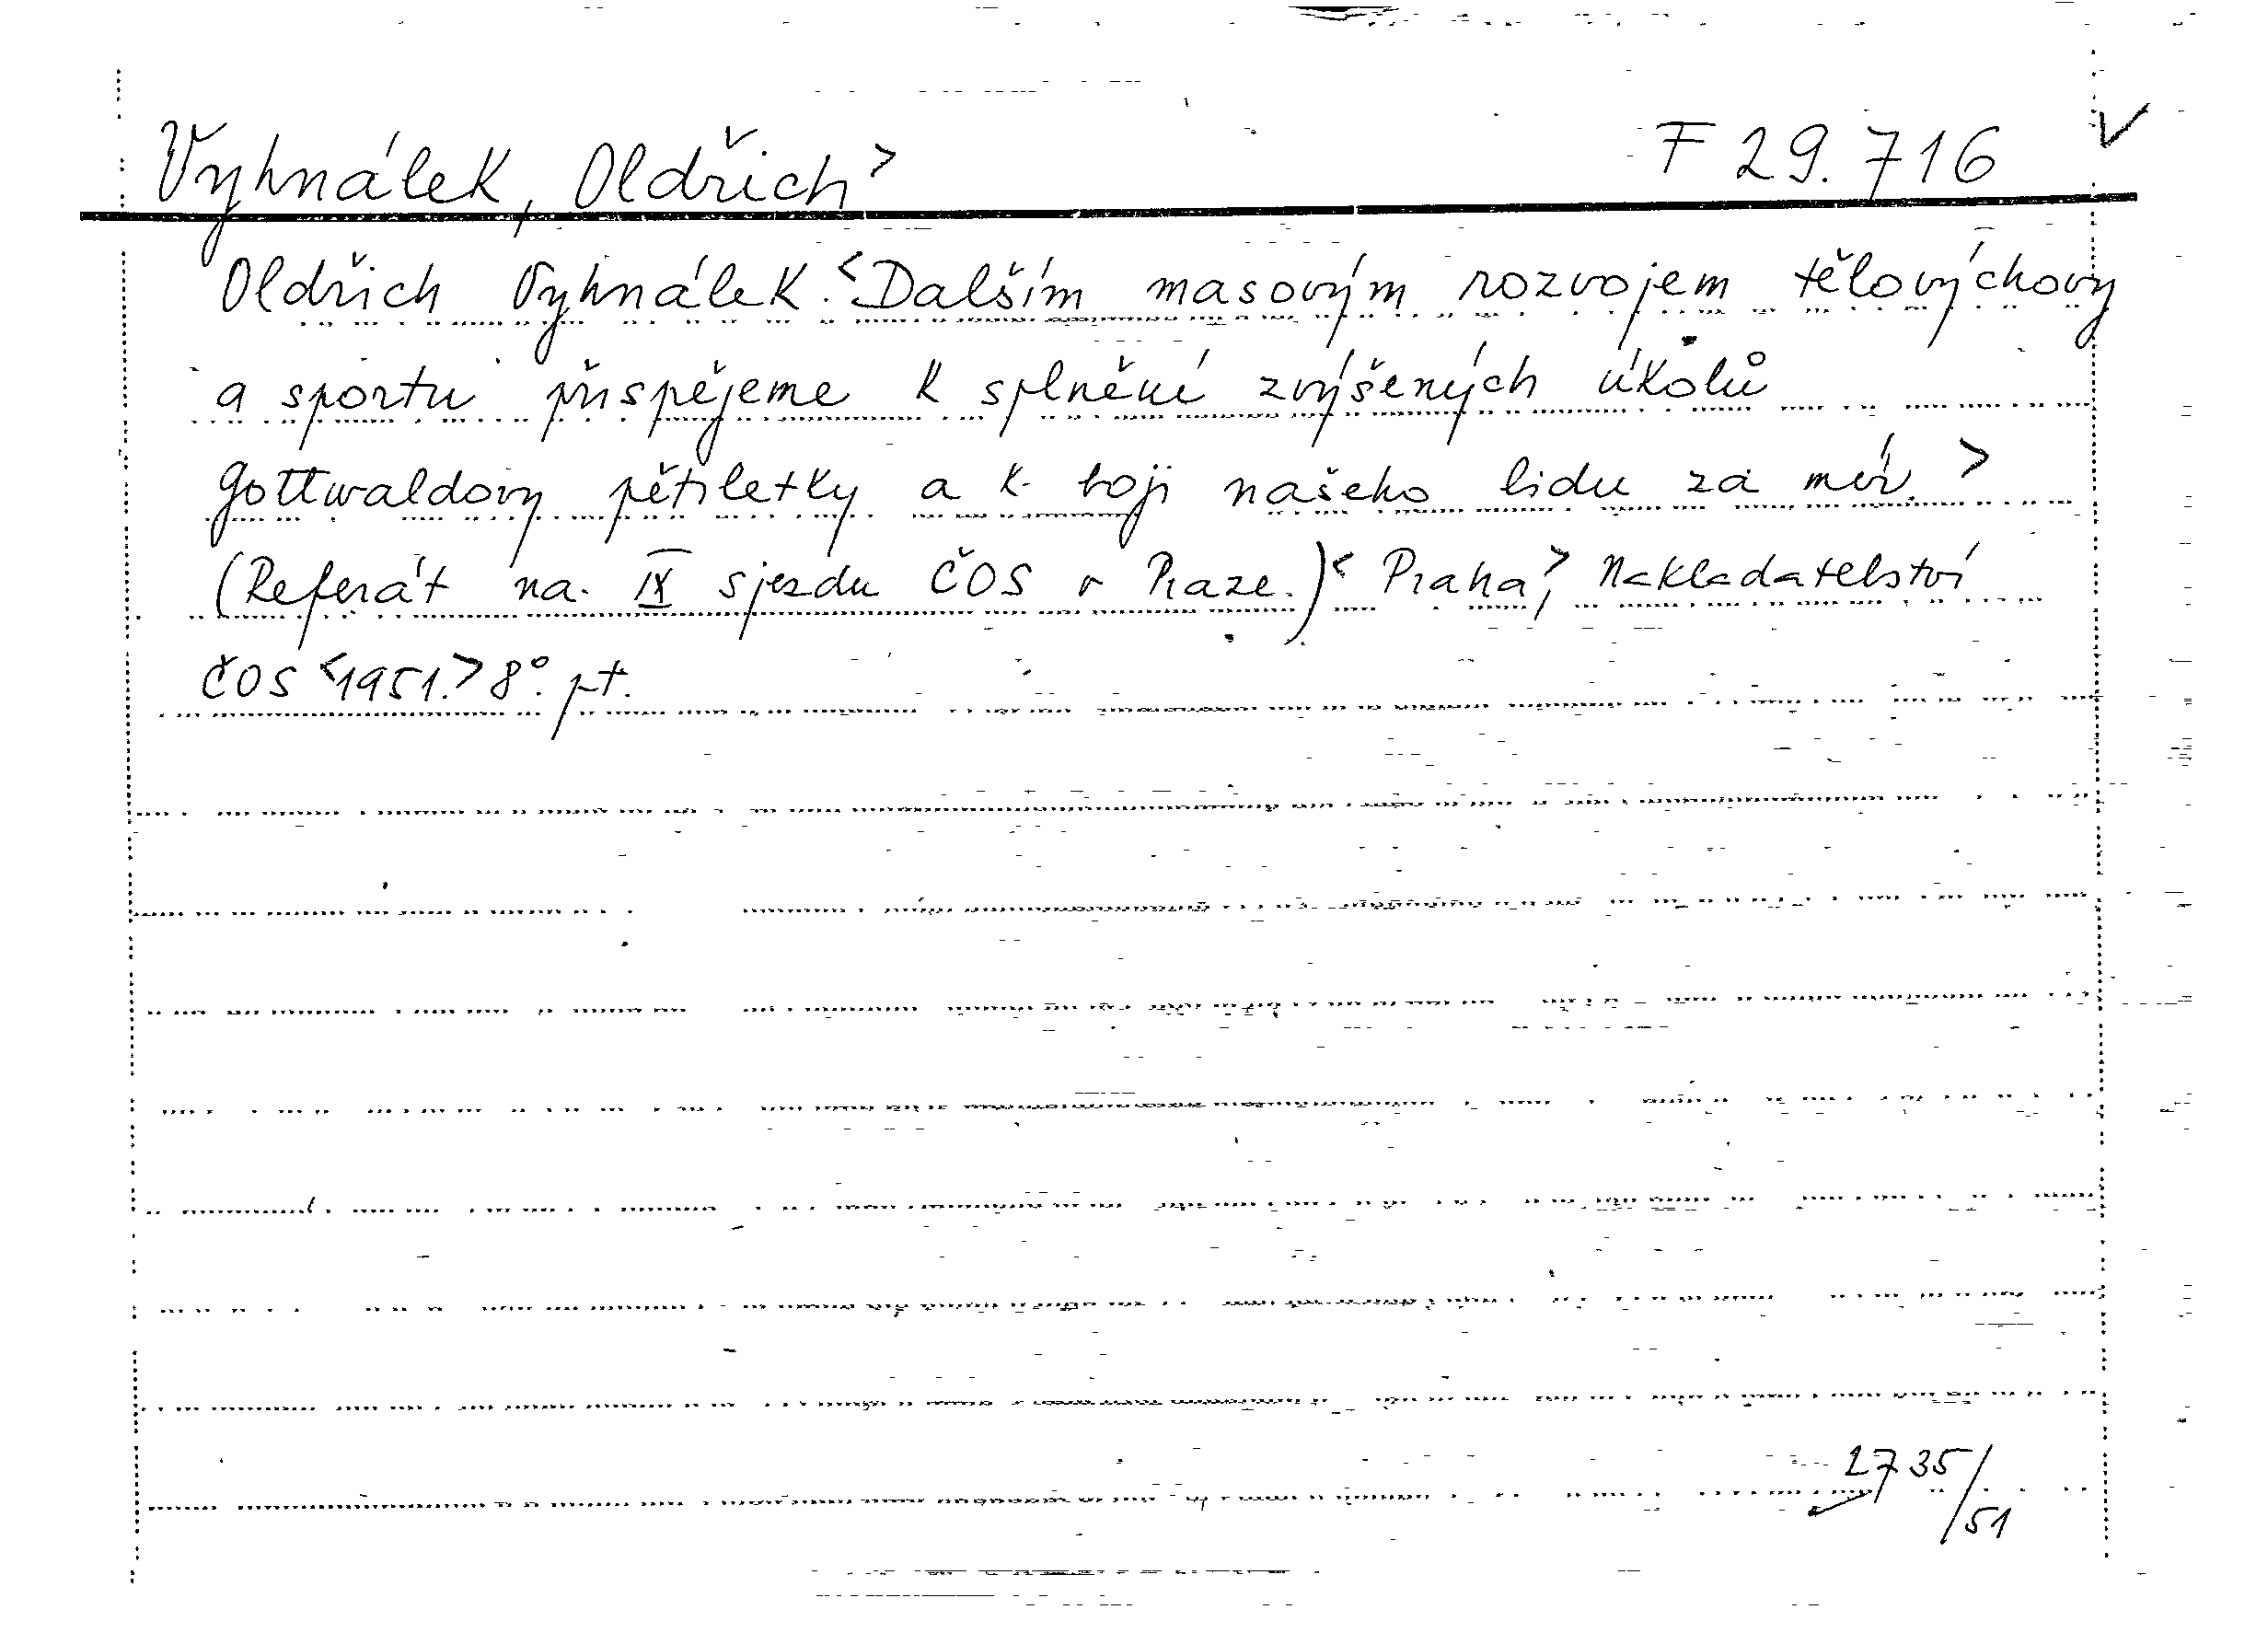 Vyhnálek, Oldřich> F 29.716 ✓
Oldřich Vyhnálek. <Dalším masovým rozvojem tělovýchovy
a sportu přispějeme k splnění zvýšených úkolů
Gottwaldovy pětiletky a k boji našeho lidu za mír.>
(Referát na IX sjezdu ČOS v Praze.)< Praha,> Nakladatelství
ČOS <1951.> 8°. pt.
2735/51